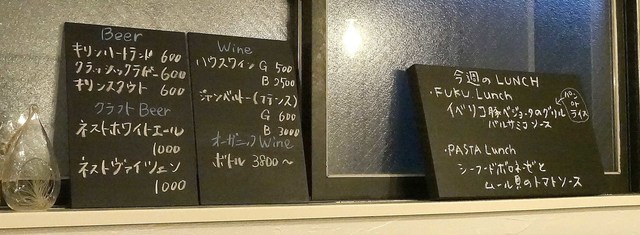 Beer
キリンハートランド 600
クラッシックラガー 600
キリンスタウト 600
クラフトBeer
ネストホワイトエール
1000
ネストヴァイツェン
1000
Wine
ハウスワイン G 500
B 2500
ジャンバルモー(フランス)
G 600
B 3000
オーガニックWine
ボトル 3800〜
今週のLUNCH
・FUKU Lunch
イベリコ豚ベジョータのグリル
バルサミコソース
パン
or
ライス
・PASTA Lunch
シーフードボロネーゼと
ムール貝のトマトソース